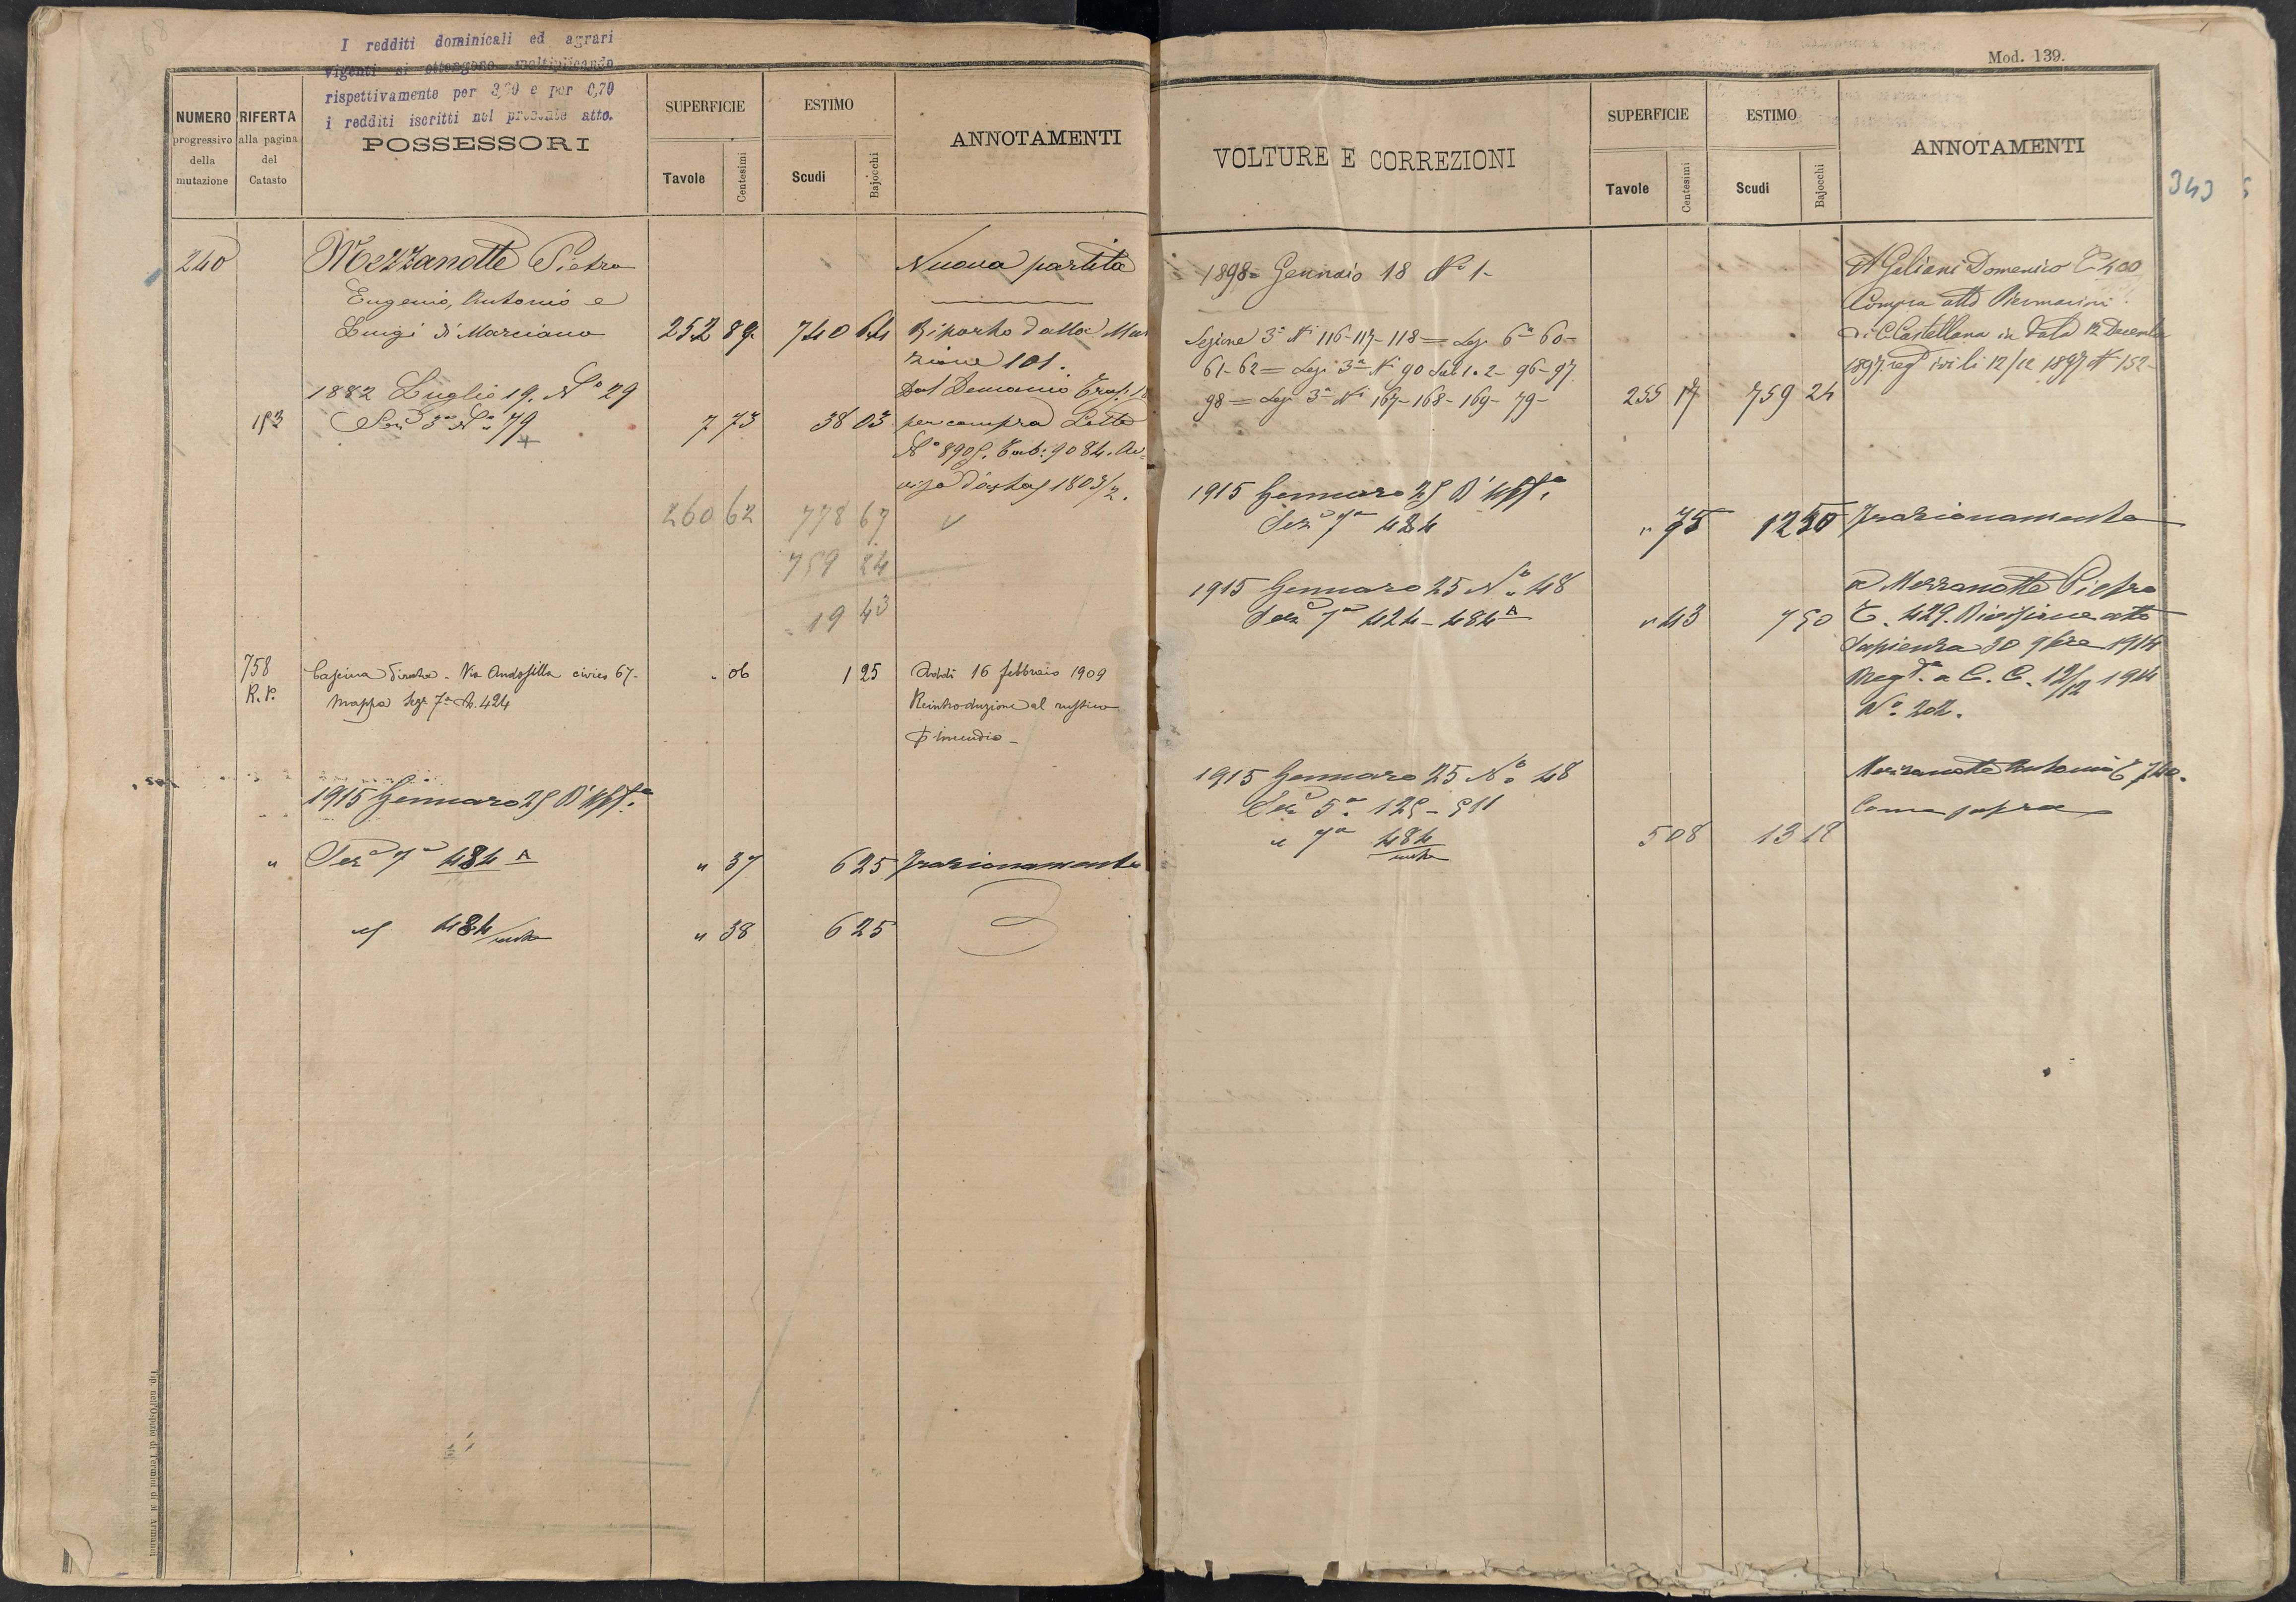 I redditi dominicali ed agrari
vigenti si ottengono moltiplicando
rispettivamente per 3,20 e per 0,70
i redditi iscritti nel presente atto.
NUMERO progressivo della mutazione
RIFERTA alla pagina del Catasto
POSSESSORI
SUPERFICIE
Tavole Centesimi
ESTIMO
Scudi Bajocchi
ANNOTAMENTI
240 Mezzanotte Pietro Nuova partita
Eugenio, Antonio e
Luigi di Marciano 252 89 740 64 Riporto dalla Mu
zione 101.
1882 Luglio 19. Nº 29 Dal Demanio Trasp.
153 Sezº 3ª Nº 79 7 73 38 03 per compra Lotto
Nº 8905. Tab: 9084. Av=
viso d'asta 1803/2.
260 62 778 67
759 24
19 43
758 Cascina diruta - Via Andosilla civico 67- - 06 1 25 Addì 16 febbraio 1909
R.P. Mappa Sez. 7ª N. 424 Reintroduzione al rustico
p incendio -
1915 Gennaro 25
" Sezº 7ª 484 A " 37 6 25 Frazionamento
484/resto " 38 6 25
Tip. nell'Ospizio di Termini di M. Armanni
Mod. 139.
VOLTURE E CORREZIONI
SUPERFICIE
Tavole Centesimi
ESTIMO
Scudi Bajocchi
ANNOTAMENTI
343
1898= Gennaio 18 Nº 1- A Giliani Domenico C 400
Compra atto Piermarini
Sezione 3ª Nⁱ 116-117-118= Sez. 6ª 60- di C. Castellana in data 12 Decembre
61-62= Sez. 3ª Nⁱ 90 sub 1. 2- 96-97 1897 regº ivi li 12/12 1897 Nº 152-
98= Sez. 3ª Nⁱ 167-168-169-79- 255 17 759 24
1915 Gennaro 25
Sezº 7ª 484 " 75 12 50 Frazionamento
1915 Gennaro 25 Nº 48 a Mezzanotte Pietro
Sezº 7ª 424-484 A " 43 7 50 C. 429. Divisione atto
Sapienza 30 9bre 1914
Regº a C. C. 12/12 1914
Nº 202.
1915 Gennaro 25 Nº 48 Mezzanotte Antonio C 740.
Sezº 5ª 125-511 Come sopra
" 7ª 484/resto 5 08 13 18